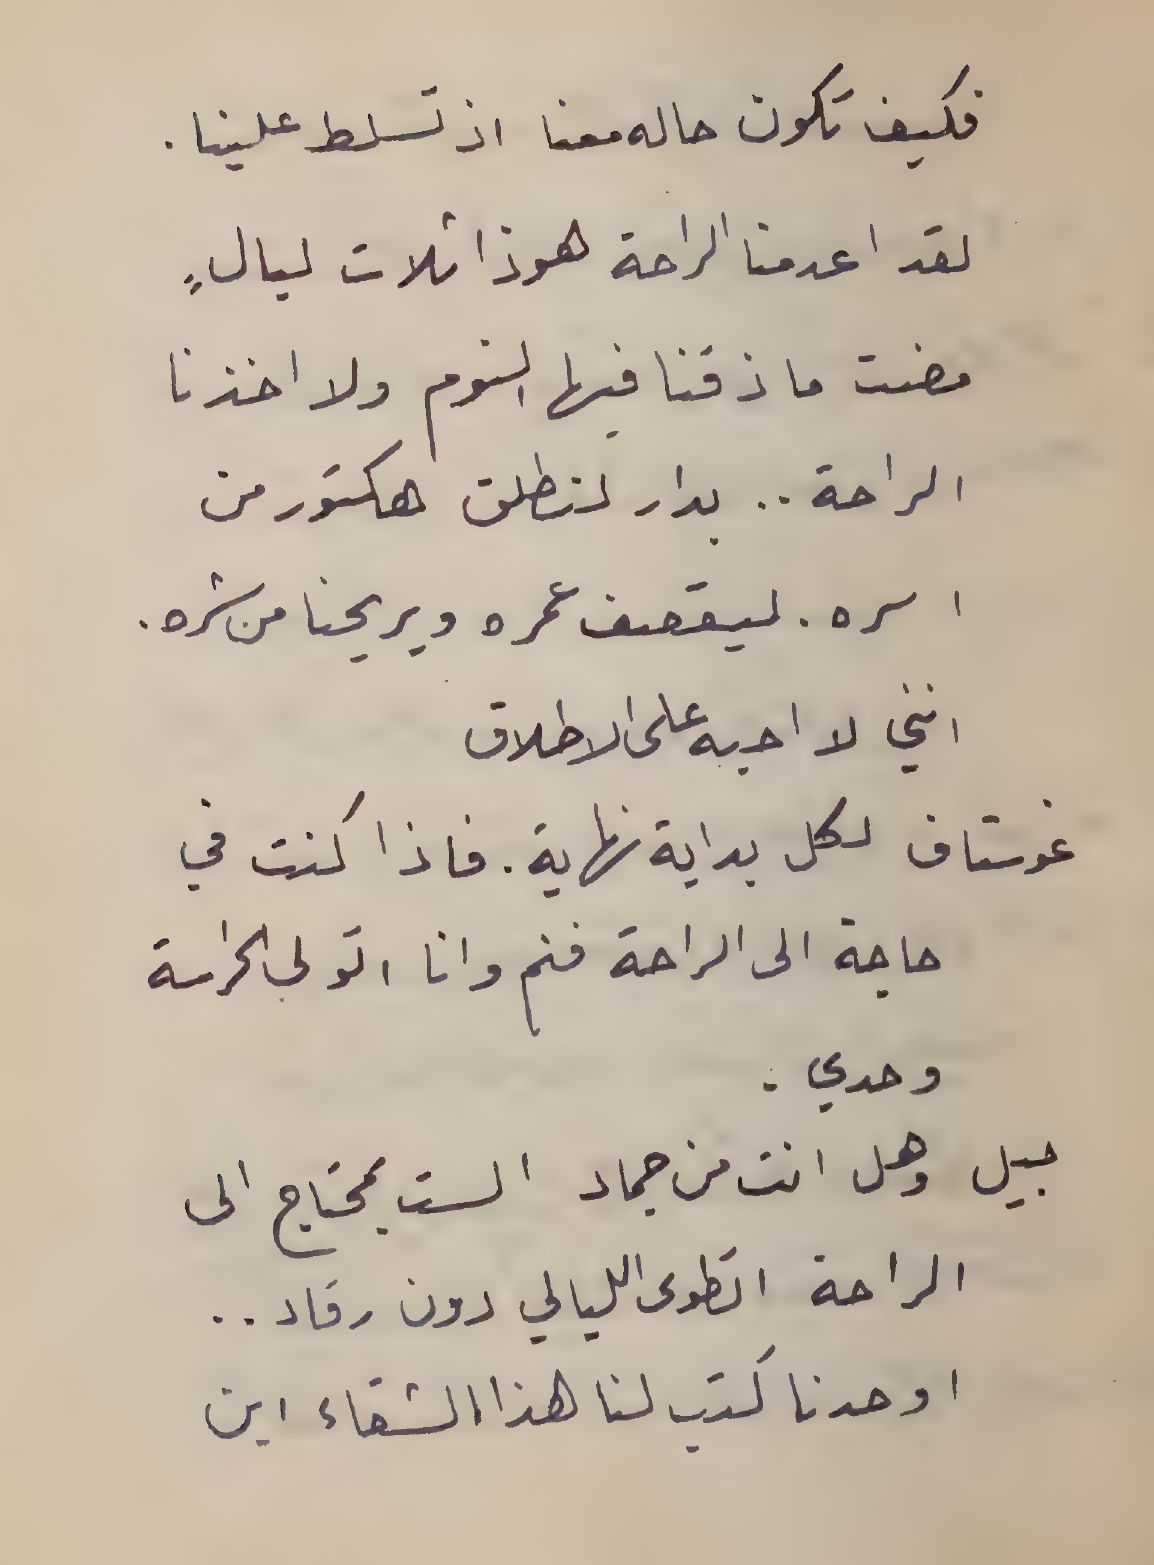 فكيف تكون حاله معنا اذ تسلط علينا .
لقد اعدمنا الراحة هوذا ثلاث ليالٍ
مضت ما ذقنا فيها النوم ولا اخذنا
الراحة .. بدار لنطلق هكتور من
اسره . ليقصف عمره ويريحنا من شره .
انني لا احبه على الاطلاق
غوستاف لكل بداية نهاية . فاذا كنت في
حاجة الى الراحة فنم وانا اتولى الحراسة
وحدي .
جبيل وهل انت من جماد الست بمحتاج الى
الراحة اتطوى الليالي دون رقاد ..
اوحدنا كتب لنا هذا الشقاء اين